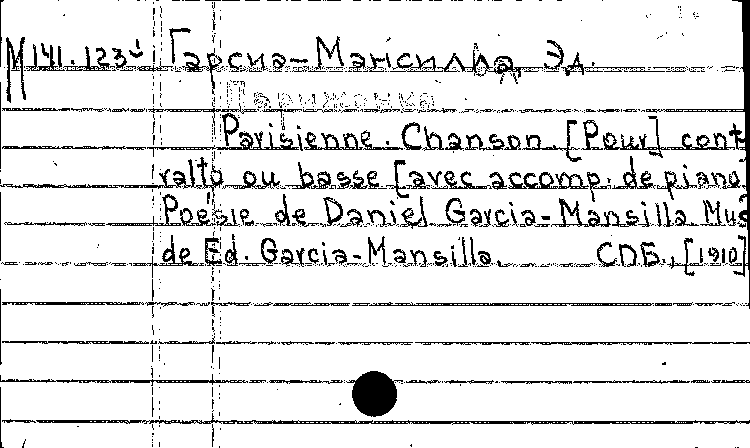 М 141.123
Гарсиа-Мансилья, Эд.
Парижанка
Parisienne. Chanson. [Pour] cont
ralto ou basse [avec accomp. de piano]
Poésie de Daniel Garcia-Mansilla. Mus
de Ed. Garcia-Mansilla. СПБ., [1910]